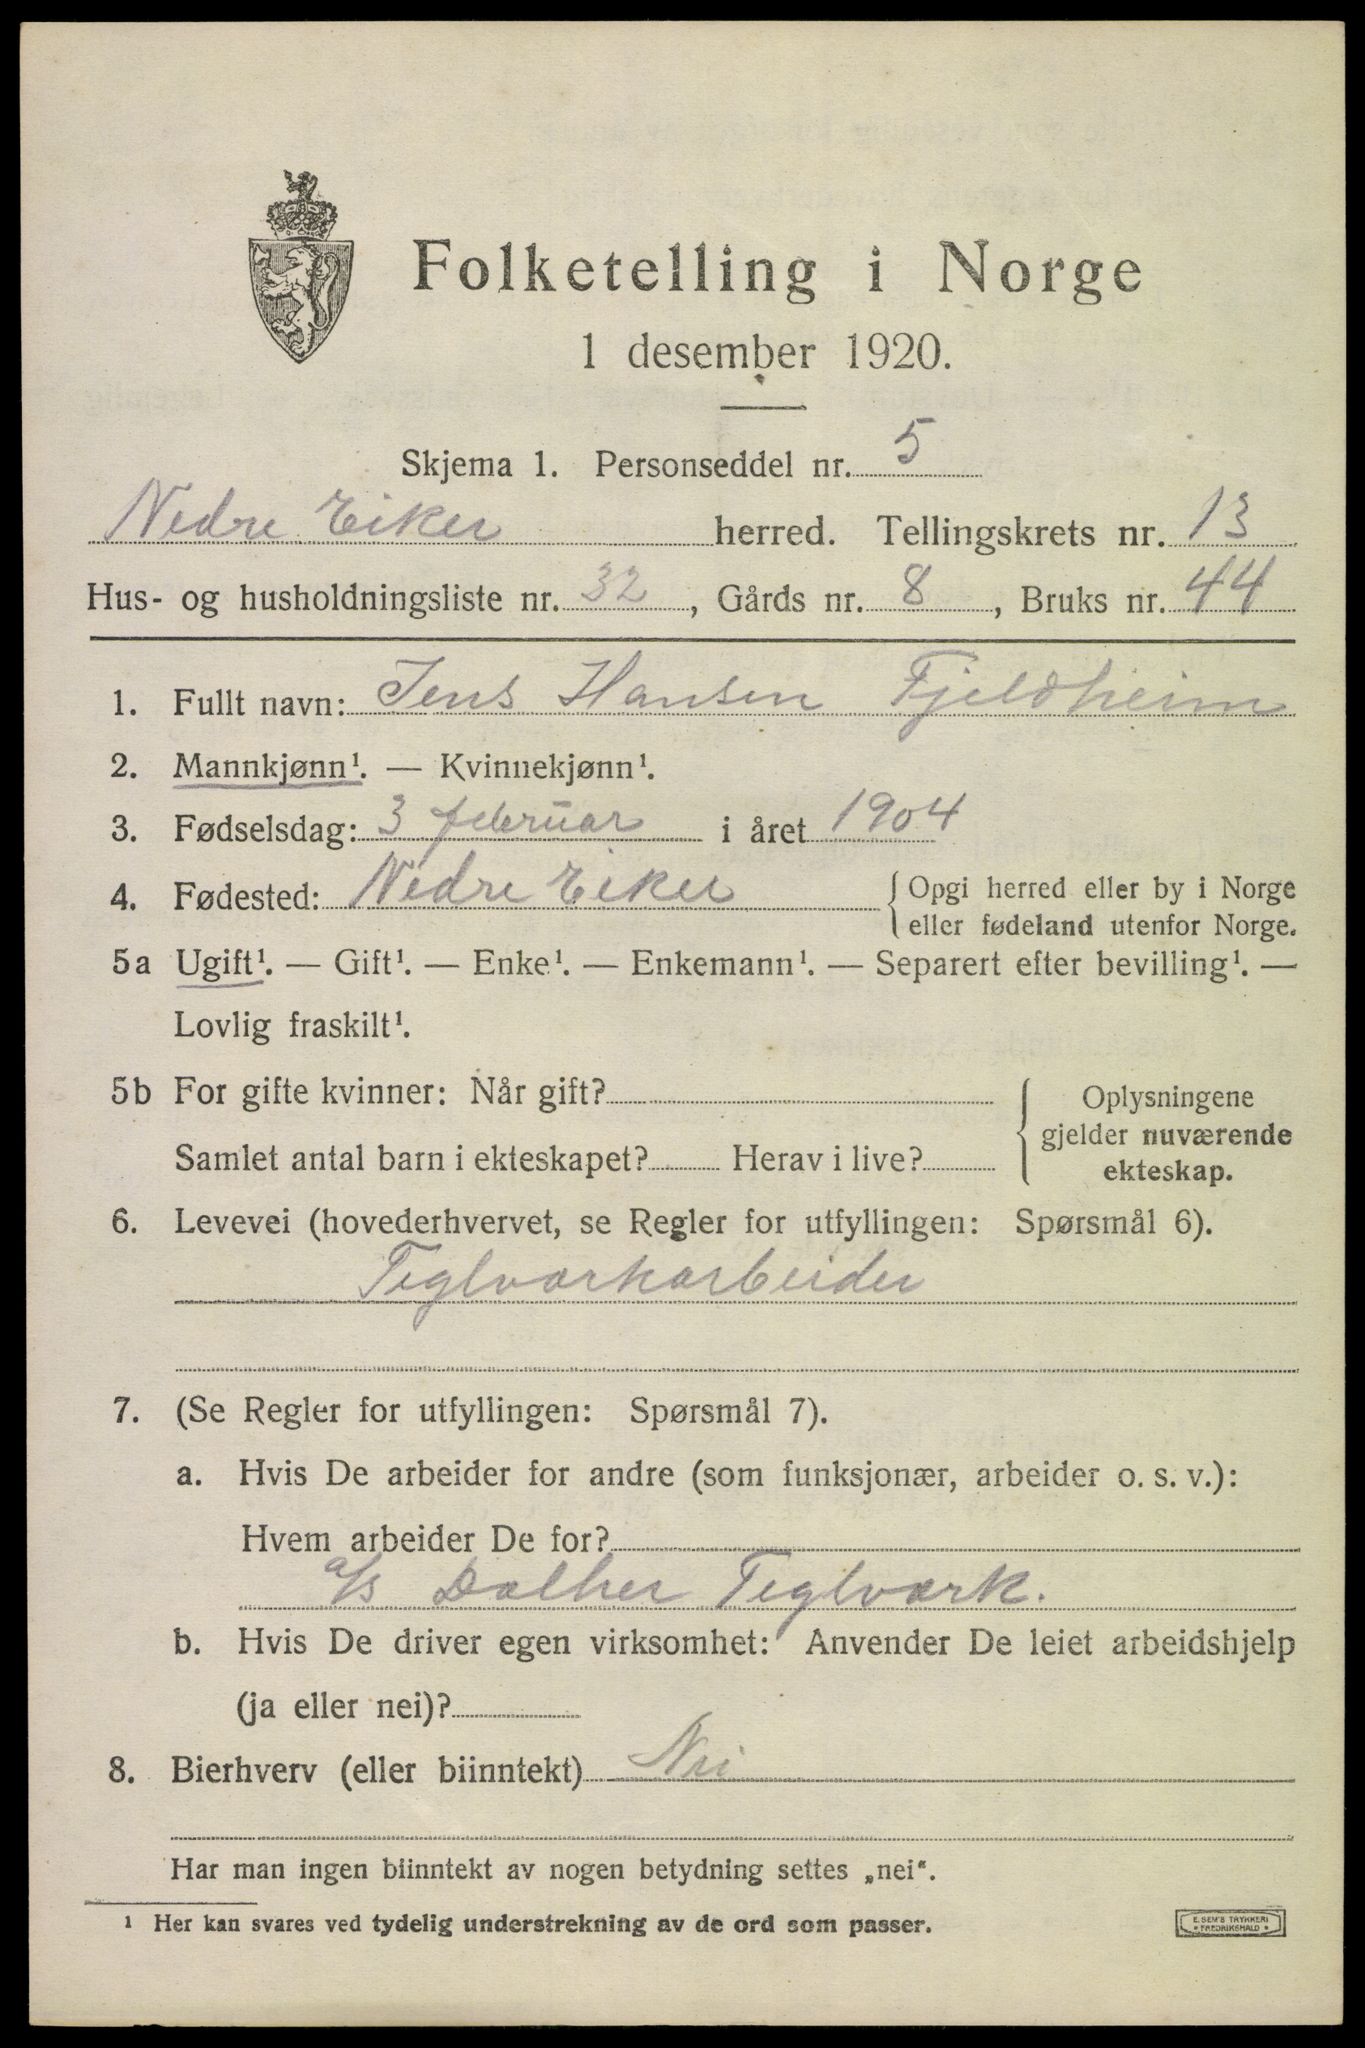 Folketelling i Norge
1 desember 1920.
Skjema 1. Personseddel nr. 5
Nedre Eiker herred. Tellingskrets nr. 13
Hus- og husholdningsliste nr. 32, Gårds nr. 8, Bruks nr. 44
1. Fullt navn: Jens Hansen Fjeldheim
2. Mannkjønn¹. — Kvinnekjønn¹.
3. Fødselsdag: 3 februar i året 1904
4. Fødested: Nedre Eiker { Opgi herred eller by i Norge
eller fødeland utenfor Norge.
5a Ugift¹. — Gift¹. — Enke¹. — Enkemann¹. — Separert efter bevilling¹. —
Lovlig fraskilt¹.
5b For gifte kvinner: Når gift?
Samlet antal barn i ekteskapet? Herav i live?
{ Oplysningene
gjelder nuværende
ekteskap.
6. Levevei (hovederhvervet, se Regler for utfyllingen: Spørsmål 6).
Teglværkarbeider
7. (Se Regler for utfyllingen: Spørsmål 7).
a. Hvis De arbeider for andre (som funksjonær, arbeider o. s. v.):
Hvem arbeider De for?
a/s Teglværk.
b. Hvis De driver egen virksomhet: Anvender De leiet arbeidshjelp
(ja eller nei)?
8. Bierhverv (eller biinntekt) Nei
Har man ingen biinntekt av nogen betydning settes „nei“.
¹ Her kan svares ved tydelig understrekning av de ord som passer.
E. SEM'S TRYKKERI
• FREDRIKSHALD •